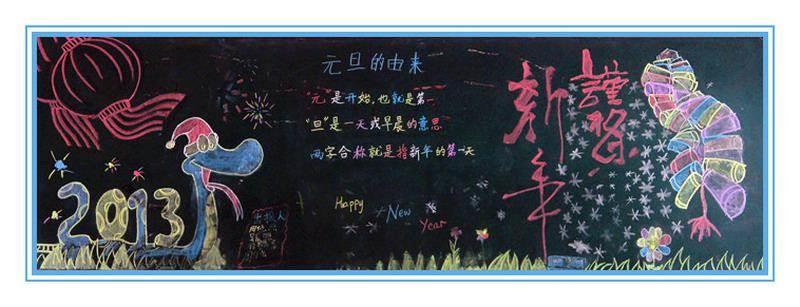 2013
元旦的由来
"元"是开始,也就是第一
"旦"是一天或早晨的意思
两字合称就是指新年的第一天
Happy
New
Year
新年
謹祭